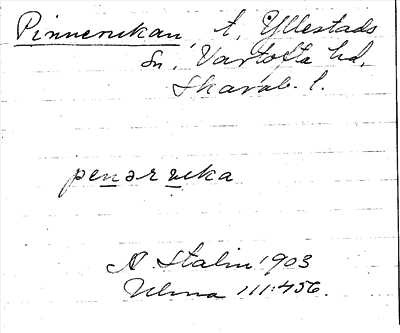 Pinnerukan, t. Yllestads
sn, Vartofta hd,
Skarab. l.
penər uka
A. Stalin 1903
Ulma 111:456.